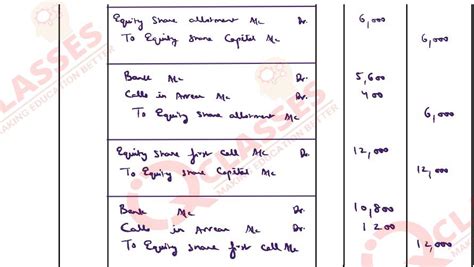 Equity Share allotment A/c Dr. 6,000
To Equity Share Capital A/c 6,000
Bank A/c Dr. 5,600
Calls in Arrear A/c Dr. 400
To Equity Share allotment A/c 6,000
Equity Share first Call A/c Dr. 12,000
To Equity Share Capital A/c 12,000
Bank A/c Dr. 10,800
Calls in Arrear A/c Dr. 1200
To Equity Share first call A/c 12,000
CLASSES
MAKING EDUCATION BETTER
CLASSES
MAKING EDUCATION BETTER